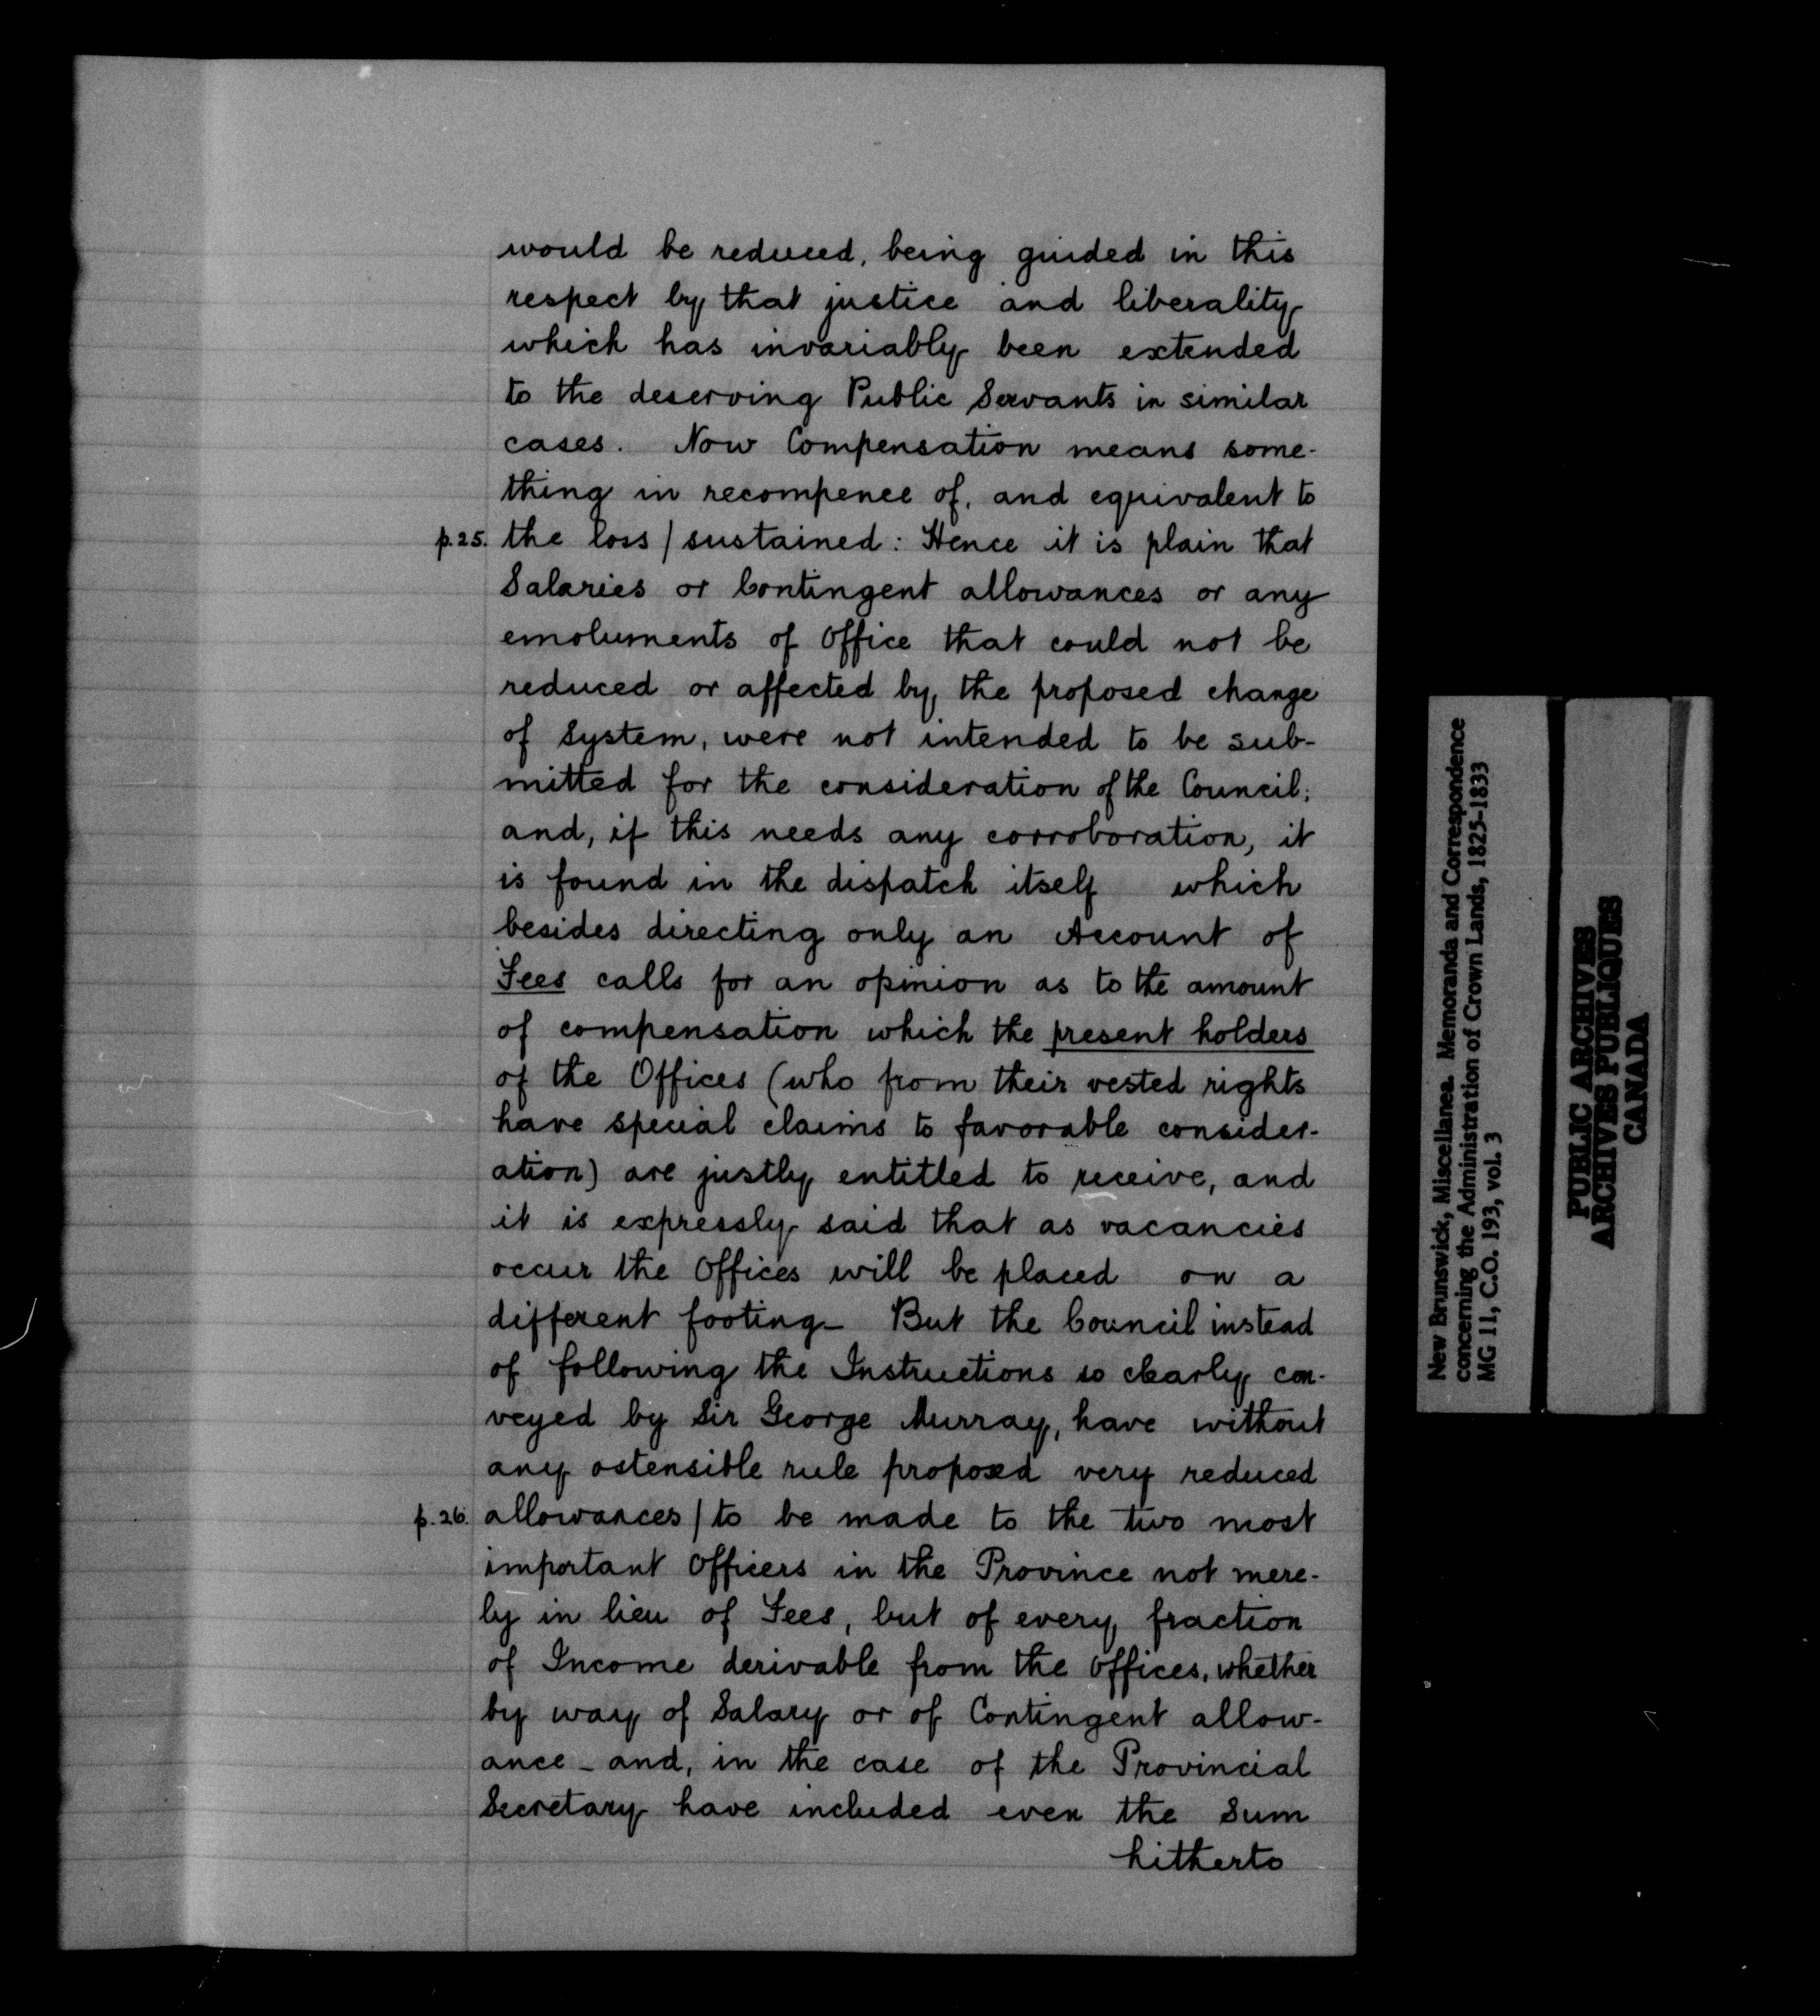 would be reduced, being guided in this
respect by that justice and liberality
which has invariably been extended
to the deserving Public Servants in similar
cases. Now Compensation means some-
thing in recompence of, and equivalent to
p.25. the loss / sustained : Hence it is plain that
Salaries or Contingent allowances or any
emoluments of Office that could not be
reduced or affected by the proposed change
of System, were not intended to be sub-
mitted for the consideration of the Council;
and, if this needs any corroboration, it
is found in the dispatch itself which
besides directing only an Account of
Fees calls for an opinion as to the amount
of compensation which the present holders
of the Offices (who from their vested rights
have special claims to favorable consider-
ation) are justly entitled to receive, and
it is expressly said that as vacancies
occur the Offices will be placed on a
different footing – But the Council instead
of following the Instructions so clearly con-
veyed by Sir George Murray, have without
any ostensible rule proposed very reduced
p.26. allowances / to be made to the two most
important Officers in the Province not mere-
ly in lieu of Fees, but of every fraction
of Income derivable from the Offices, whether
by way of Salary or of Contingent allow-
ance – and, in the case of the Provincial
Secretary have included even the Sum
hitherto
New Brunswick, Miscellanea. Memoranda and Correspondence
concerning the Administration of Crown Lands, 1825-1833
MG 11, C.O. 193, vol. 3
PUBLIC ARCHIVES
ARCHIVES PUBLIQUES
CANADA